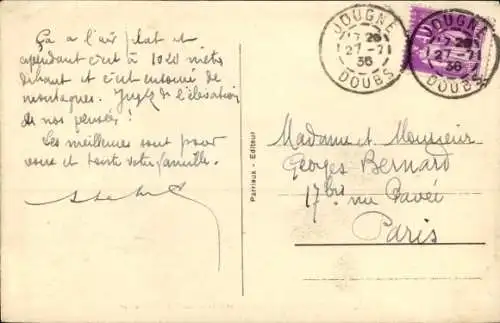 Ça a l'air plat et
cependant c'est à 1020 mètres
d'haut et c'est entouré de
montagnes. Jugez de l'élévation
de nos pensées !
Les meilleures sont pour
vous et toute votre famille.
Parriaux - Editeur
JOUGNE
17 20
27 -7
36
DOUBS
JOUGNE
17 20
27 -7
36
DOUBS
Madame et Monsieur
Georges Bernard
17bis rue Pavée
Paris